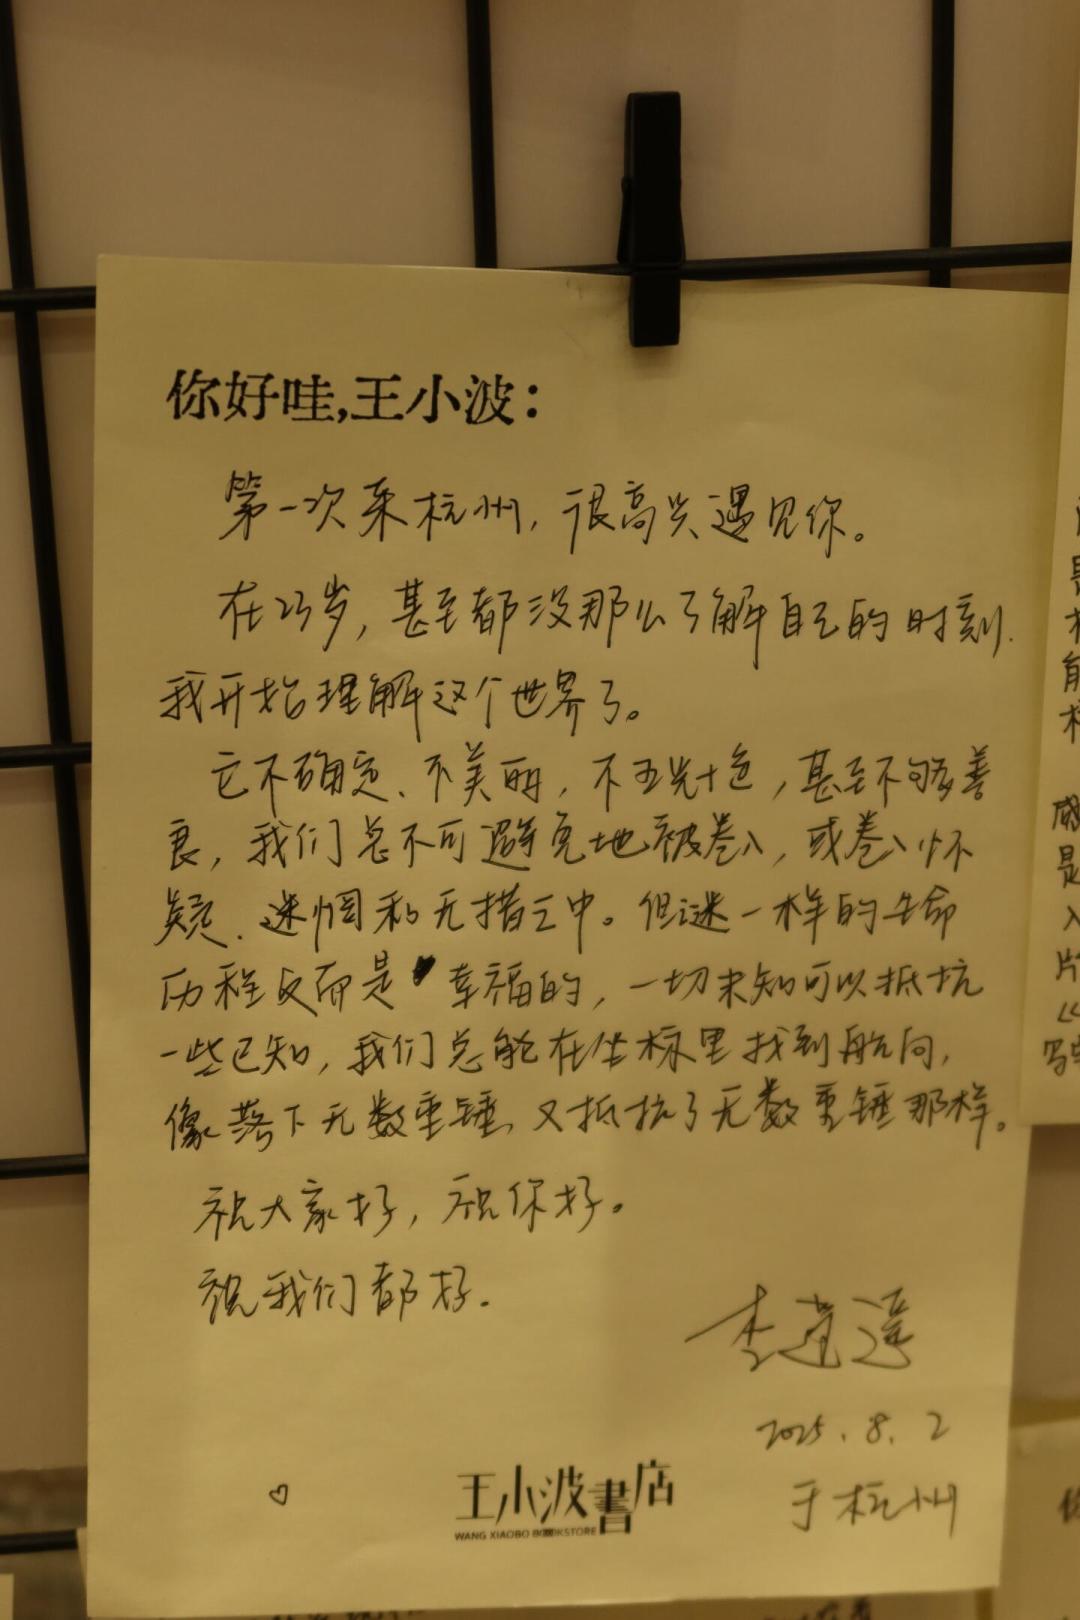 你好哇,王小波：
第一次来杭州，很高兴遇见你。
在23岁，甚至都没那么了解自己的时刻，
我开始理解这个世界了。
它不确定、不美丽，不五光十色，甚至不够善
良，我们总不可避免地被卷入，或卷入怀
疑、迷惘和无措之中。但谜一样的生命
历程反而是幸福的，一切未知可以抵抗
一些已知，我们总能在坐标里找到航向，
像落下无数重锤，又抵抗了无数重锤那样。
祝大家好，祝你好。
祝我们都好。
李
2025.8.2
于杭州
王小波書店
WANG XIAOBO BOOKSTORE